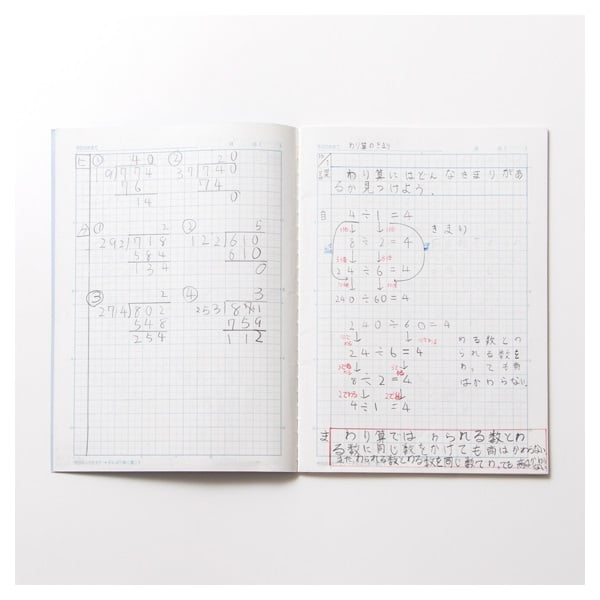 ヒ ① ②
40 20
19)774 37)740
76 74
14 0
0
① ②
2 5
292)718 122)610
584 610
134 0
③ ④
2 3
274)802 253)871
548 759
254 112
わり算のきまり
わり算にはどんなきまりがあ
るか見つけよう。
自 4÷1=4
きまり
8÷2=4
24÷6=4
240÷60=4
240÷60=4
わる数とわ
24÷6=4 られる数を
わっても商
8÷2=4 はかわらない。
2でわる
4÷1=4
ま わり算では、わられる数とわ
る数に同じ数をかけても商はかわらない
また、わられる数とわる数を同じ数でわっても商は